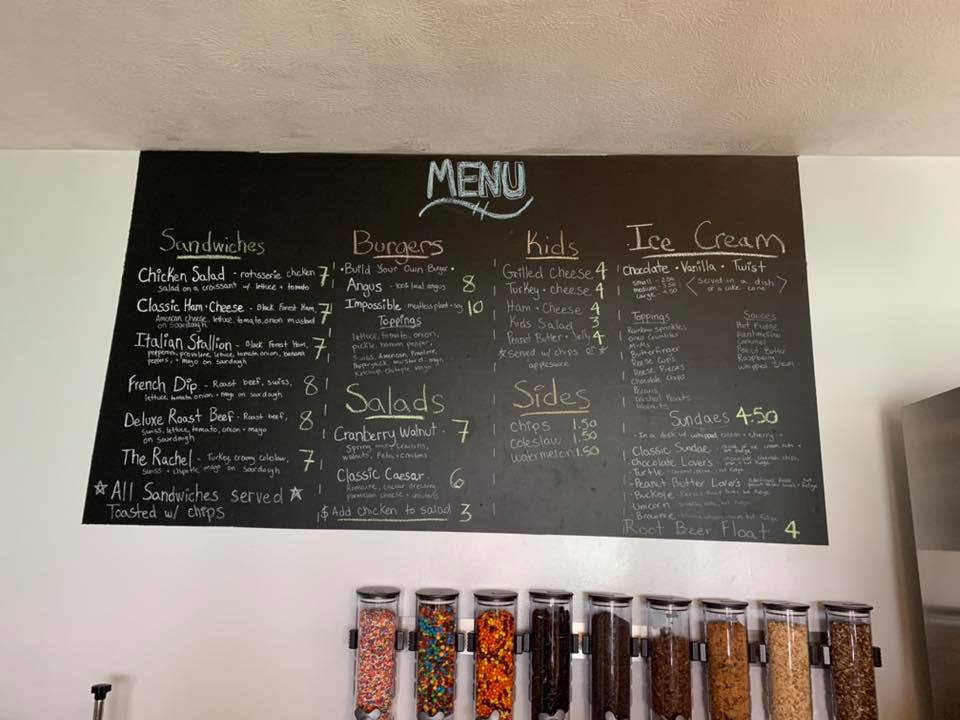 MENU
Sandwiches
Chicken Salad - rotisserie chicken 7
salad on a croissant w/ lettuce + tomato
Classic Ham + Cheese - Black Forest Ham, 7
American cheese, lettuce, tomato, onion, mustard
on sourdough
Italian Stallion - Black Forest Ham, 7
pepperoni, provolone, lettuce, tomato, onion, banana
peppers, + mayo on sourdough
French Dip - Roast beef, swiss, 8
lettuce tomato onion + mayo on sourdough
Deluxe Roast Beef - Roast beef, 8
swiss, lettuce, tomato, onion + mayo
on sourdough
The Rachel - Turkey, creamy coleslaw, 7
swiss + chipotle mayo on sourdough
All Sandwiches served
Toasted w/ chips
Burgers
• Build Your Own Burger •
Angus - local angus 8
Impossible - meatless plant - soy 10
Toppings
lettuce, tomato, onion,
pickle, banana pepper,
Swiss, American, Provolone,
Pepperjack, mustard, mayo,
Ketchup, Chipotle mayo
Salads
Cranberry Walnut - 7
Spring mix, craisins,
walnuts, feta, + croutons
Classic Caesar - 6
Romaine, caesar dressing,
parmesan cheese + croutons
$ Add chicken to salad 3
Kids
Grilled Cheese 4
Turkey + cheese 4
Ham + Cheese 4
Kids Salad 3
Peanut Butter + Jelly 4
*served w/ chips or*
applesauce
Sides
chips 1.50
coleslaw 1.50
watermelon 1.50
Ice Cream
Chocolate • Vanilla • Twist
small -
medium 3.50
large 4.50
< served in a dish >
or a cake cone
Toppings
Rainbow sprinkles
oreo crumbles
M+Ms
Butterfinger
Reese Cups
Reese Pieces
Chocolate chips
Pecans
Crushed Peanuts
Walnuts
Sauces
Hot Fudge
Marshmallow
Caramel
Peanut Butter
Raspberry
whipped cream
Sundaes 4.50
- In a dish w/ whipped cream + cherry -
- Classic Sundae -
- Chocolate Lover's -
- Turtle -
- Peanut Butter Lover's -
- Buckeye -
- Unicorn -
- Brownie -
Root Beer Float 4